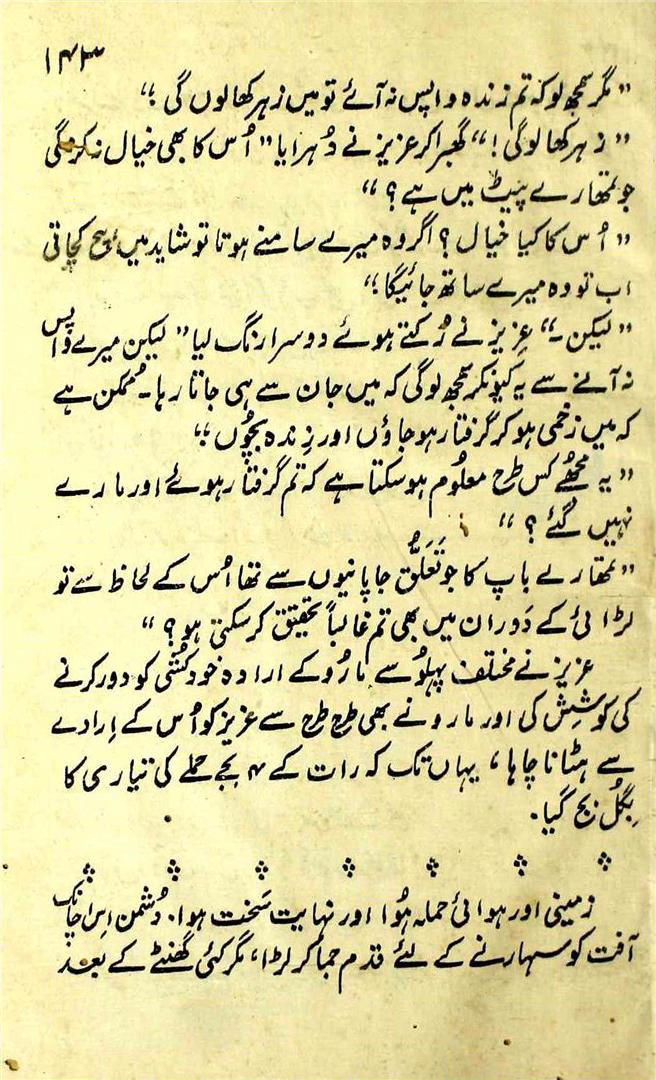 ۱۴۳
"مگر سمجھ لو کہ تم زندہ واپس نہ آئے تو میں زہر کھالوں گی ؛"
"زہر کھالوگی!" گھبرا کر عزیز نے دُہرایا "اُس کا بھی خیال نہ کروگی
جو تمھارے پیٹ میں ہے؟"
"اُس کا کیا خیال؟ اگر وہ میرے سامنے ہوتا تو شاید میں ہچکچاتی
اب تو وہ میرے ساتھ جائیگا؛"
"لیکن۔" عزیز نے رُکتے ہوئے دوسرا رنگ لیا "لیکن میرے واپس
نہ آنے سے یہ کیونکر سمجھ لوگی کہ میں جان سے ہی جاتا رہا۔ مُمکن ہے
کہ میں زخمی ہو کر گرفتار ہو جاؤں اور زندہ بچُوں ؛"
"یہ مجھُے کس طرح معلُوم ہو سکتا ہے کہ تم گرفتار ہوئے اور مارے
نہیں گئے؟"
"تمھارے باپ کا جو تَعَلُّق جاپانیوں سے تھا اُس کے لحاظ سے تو
لڑائی کے دَوران میں بھی تم غالباً تحقیق کر سکتی ہو؟"
عزیز نے مختلف پہلُو سے مارُو کے ارادہ خودکشی کو دور کرنے
کی کوشِش کی اور مارو نے بھی طرح طرح سے عزیز کو اُس کے اِرادے
سے ہٹانا چاہا، یہاں تک کہ رات کے ۴ بجے حملے کی تیاری کا
بِگُل بج گیا۔
زمینی اور ہوائی حملہ ہُوا اور نہایت سَخت ہوا۔ دُشمن اِس اچانک
آفت کو سہارنے کے لئے قدم جما کر لڑا، مگر کئی گھنٹے کے بعد